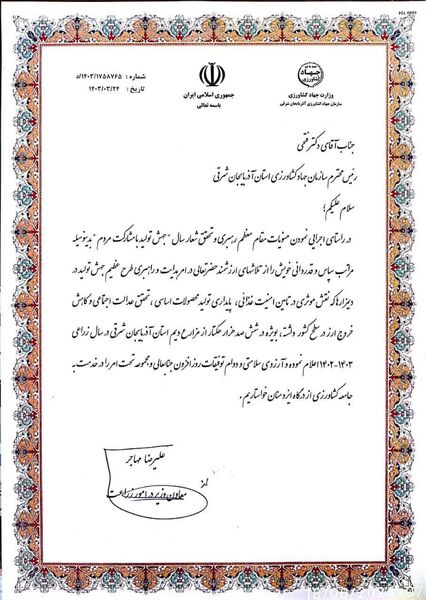 جهاد کشاورزی
وزارت جهاد کشاورزی
سازمان جهاد کشاورزی آذربایجان شرقی
جمهوری اسلامی ایران
باسمه تعالی
شماره : ۱۴۰۳/۱۷۵۸۷۶۵/د
تاریخ : ۱۴۰۳/۰۳/۲۴
جناب آقای دکتر فتحی
رئیس محترم سازمان جهاد کشاورزی استان آذربایجان شرقی
سلام علیکم؛
در راستای اجرایی نمودن منویات مقام معظم رهبری و تحقق شعار سال "جهش تولید با مشارکت مردم" بدینوسیله
مراتب سپاس و قدردانی خویش را از تلاشهای ارزشمند حضرتعالی در امر هدایت و راهبری طرح عظیم جهش تولید در
دیمزارها که نقش موثری در تامین امنیت غذائی، پایداری تولید محصولات اساسی، تحقق عدالت اجتماعی و کاهش
خروج ارز در سطح کشور داشته، بویژه در شش صد هزار هکتار از مزارع دیم استان آذربایجان شرقی در سال زراعی
۱۴۰۳-۱۴۰۲ اعلام نموده و آرزوی سلامتی و دوام توفیقات روزافزون جنابعالی و مجموعه تحت امر را در خدمت به
جامعه کشاورزی از درگاه ایزد منان خواستاریم.
علیرضا مهاجر
معاون وزیر در امور زراعت